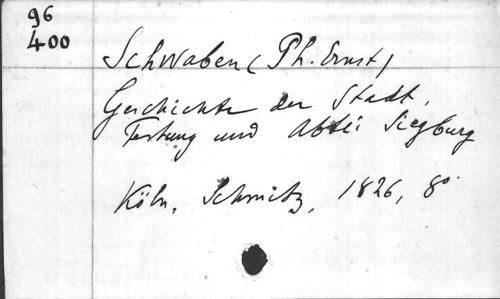 96
400
Schwaben (Ph. Ernst)
Geschichte der Stadt,
Festung und Abtei Siegburg
Köln, Schmitz, 1826, 8o.